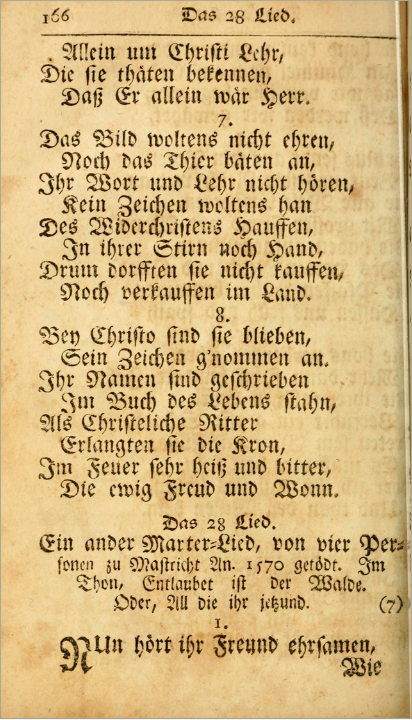 166 Das 28 Lied.
Allein um Christi Lehr,
Die sie thäten bekennen,
Daß Er allein wär Herr.
7.
Das Bild woltens nicht ehren,
Noch das Thier bäten an,
Ihr Wort und Lehr nicht hören,
Kein Zeichen woltens han
Des Widerchristens Hauffen,
In ihrer Stirn noch Hand,
Drum dorfften sie nicht kauffen,
Noch verkauffen im Land.
8.
Bey Christo sind sie blieben,
Sein Zeichen g'nommen an.
Ihr Namen sind geschrieben
Im Buch des Lebens stahn,
Als Christeliche Ritter
Erlangten sie die Kron,
Im Feuer sehr heiß und bitter,
Die ewig Freud und Wonn.
Das 28 Lied.
Ein ander Marter-Lied, von vier Per-
sonen zu Mastricht An. 1570 getödt. Im
Thon, Entlaubet ist der Walde.
Oder, All die ihr jetzund. (7)
1.
NUn hört ihr Freund ehrsamen,
Wie